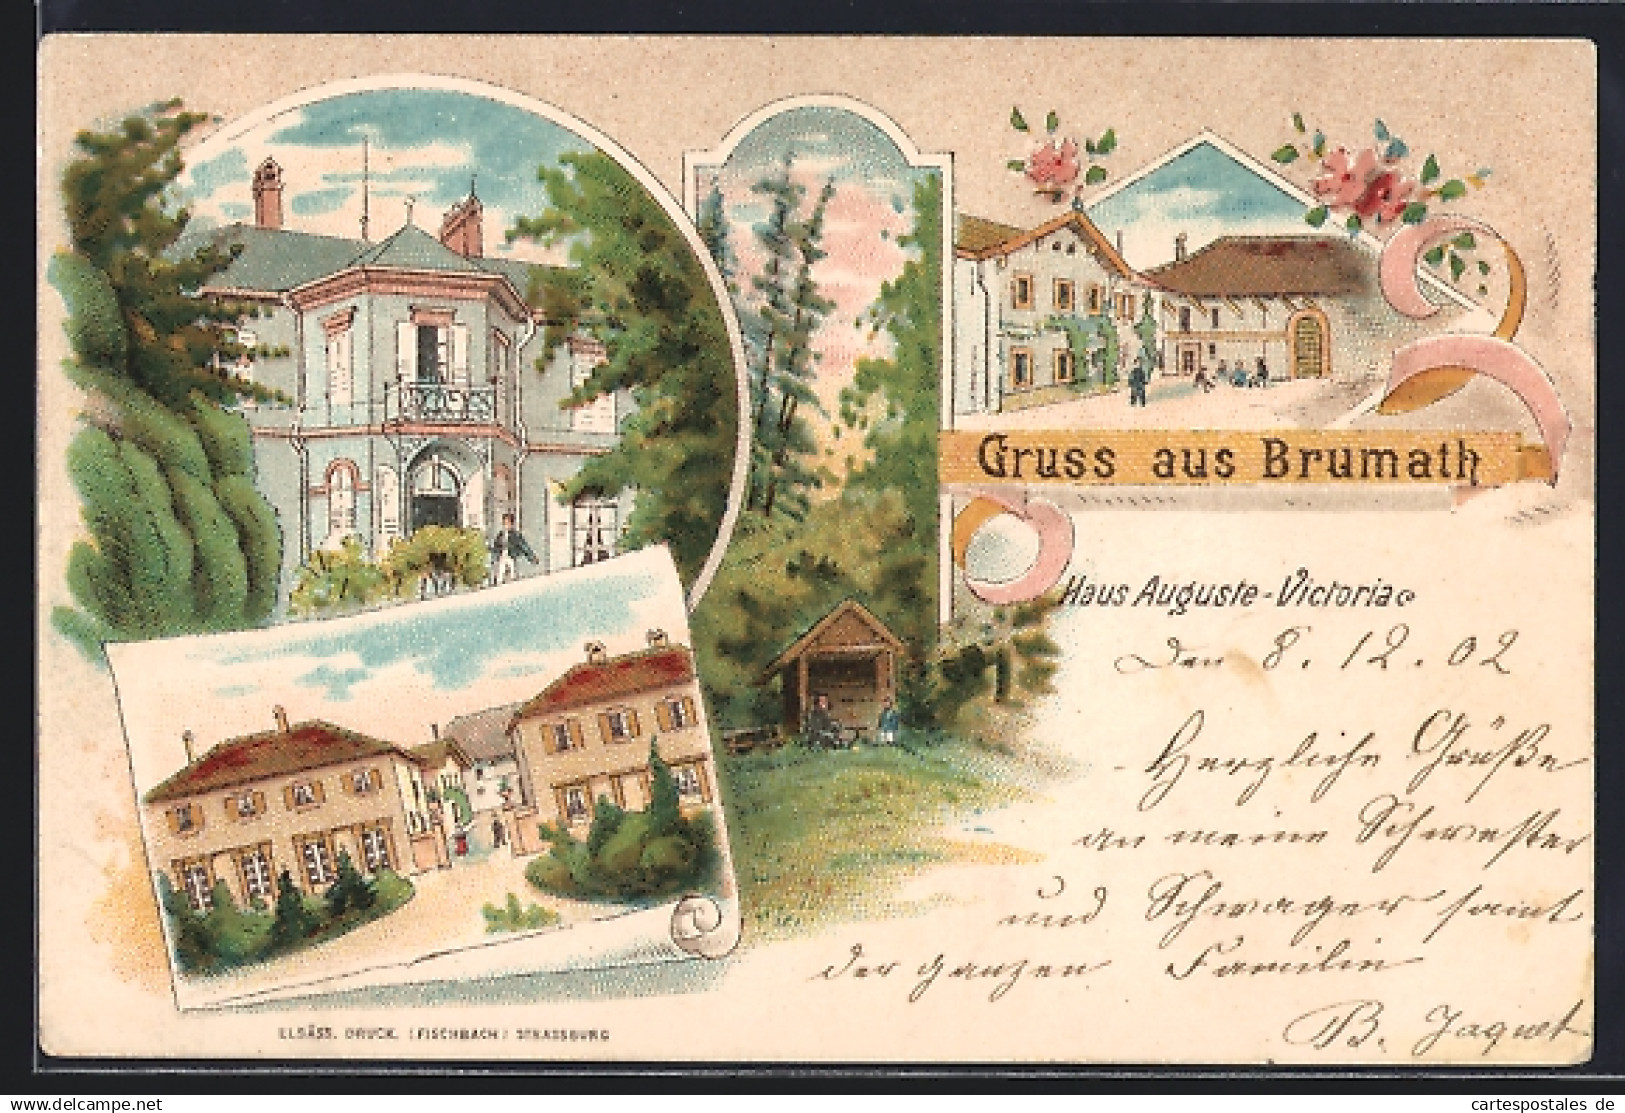 Gruss aus Brumath
Haus Auguste-Victoria
Den 8. 12. 02
Herzliche Grüße
an meine Schwester
und Schwager samt
der ganzen Familie
B. Jaquet
ELSÄSS. DRUCK. (FISCHBACH) STRASSBURG
Copyright © Privatverkauf Delcampe cartespostales.de